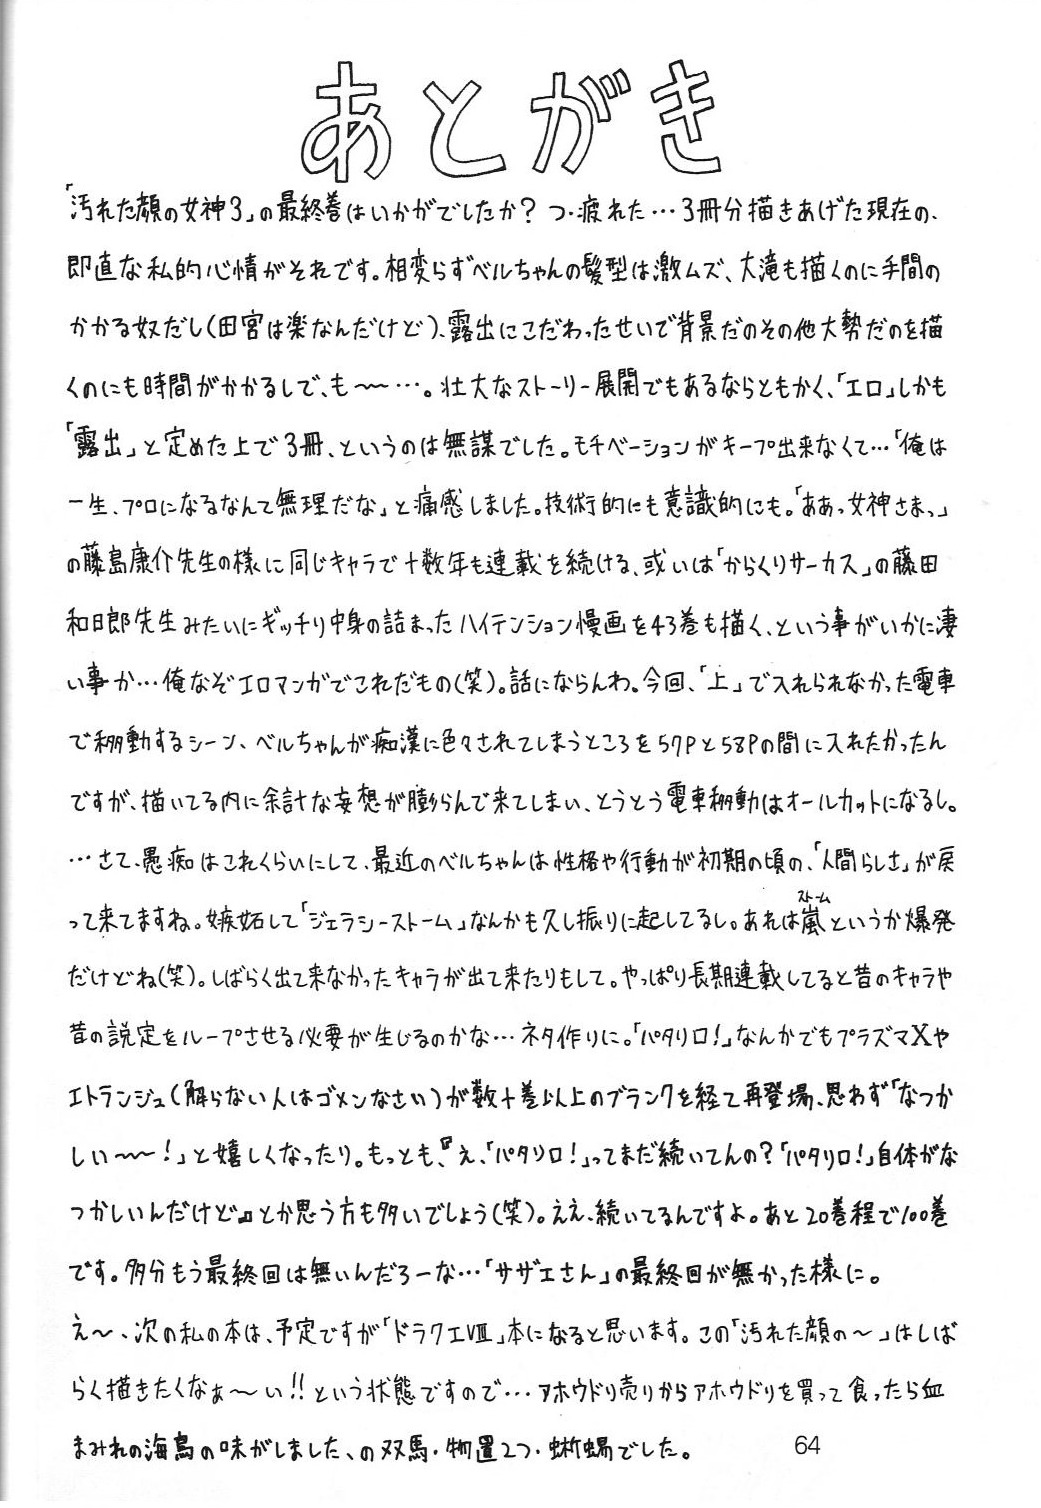 あとがき
「汚れた顔の女神3」の最終巻はいかがでしたか？つ・疲れた…3冊分描きあげた現在の、
即直な私的心情がそれです。相変らずベルちゃんの髪型は激ムズ、大滝も描くのに手間の
かかる奴だし(田宮は楽なんだけど)、露出にこだわったせいで背景だのその他大勢だのを描
くのにも時間がかかるしで、も〜〜…。壮大なストーリー展開でもあるならともかく、「エロ」しかも
「露出」と定めた上で3冊、というのは無謀でした。モチベーションがキープ出来なくて…「俺は
一生、プロになるなんて無理だな」と痛感しました。技術的にも意識的にも。「ああっ女神さまっ」
の藤島康介先生の様に同じキャラで十数年も連載を続ける、或いは「からくりサーカス」の藤田
和日郎先生みたいにギッチリ中身の詰まったハイテンション慢画を43巻も描く、という事がいかに凄
い事か…俺なぞエロマンガでこれだもの(笑)。話にならんわ。今回、「上」で入れられなかった電車
で移動するシーン、ベルちゃんが痴漢に色々されてしまうところを57Pと58Pの間に入れたかったん
ですが、描いてる内に余計な妄想が膨らんで来てしまい、とうとう電車移動はオールカットになるし。
…さて、愚痴はこれくらいにして、最近のベルちゃんは性格や行動が初期の頃の、「人間らしさ」が戻
って来てますね。嫉妬して「ジェラシーストーム」なんかも久し振りに起してるし。あれは嵐というか爆発
ストーム
だけどね(笑)。しばらく出て来なかったキャラが出て来たりもして。やっぱり長期連載してると昔のキャラや
昔の説定をループさせる必要が生じるのかな…ネタ作りに。「パタリロ！」なんかでもプラズマXや
エトランジュ(解らない人はゴメンなさい)が数十巻以上のブランクを経て再登場、思わず「なつか
しい〜〜！」と嬉しくなったり。もっとも、『え、「パタリロ！」ってまだ続いてんの？「パタリロ！」自体がな
つかしいんだけど』とか思う方も多いでしょう(笑)。ええ、続いてるんですよ。あと20巻程で100巻
です。多分もう最終回は無いんだろーな…「サザエさん」の最終回が無かった様に。
え〜、次の私の本は、予定ですが「ドラクエVIII」本になると思います。この「汚れた顔の〜」はしば
らく描きたくなぁ〜い!!という状態ですので…アホウドリ売りからアホウドリを買って食ったら血
まみれの海鳥の味がしました、の双馬・物置2つ・蜥蜴でした。
64